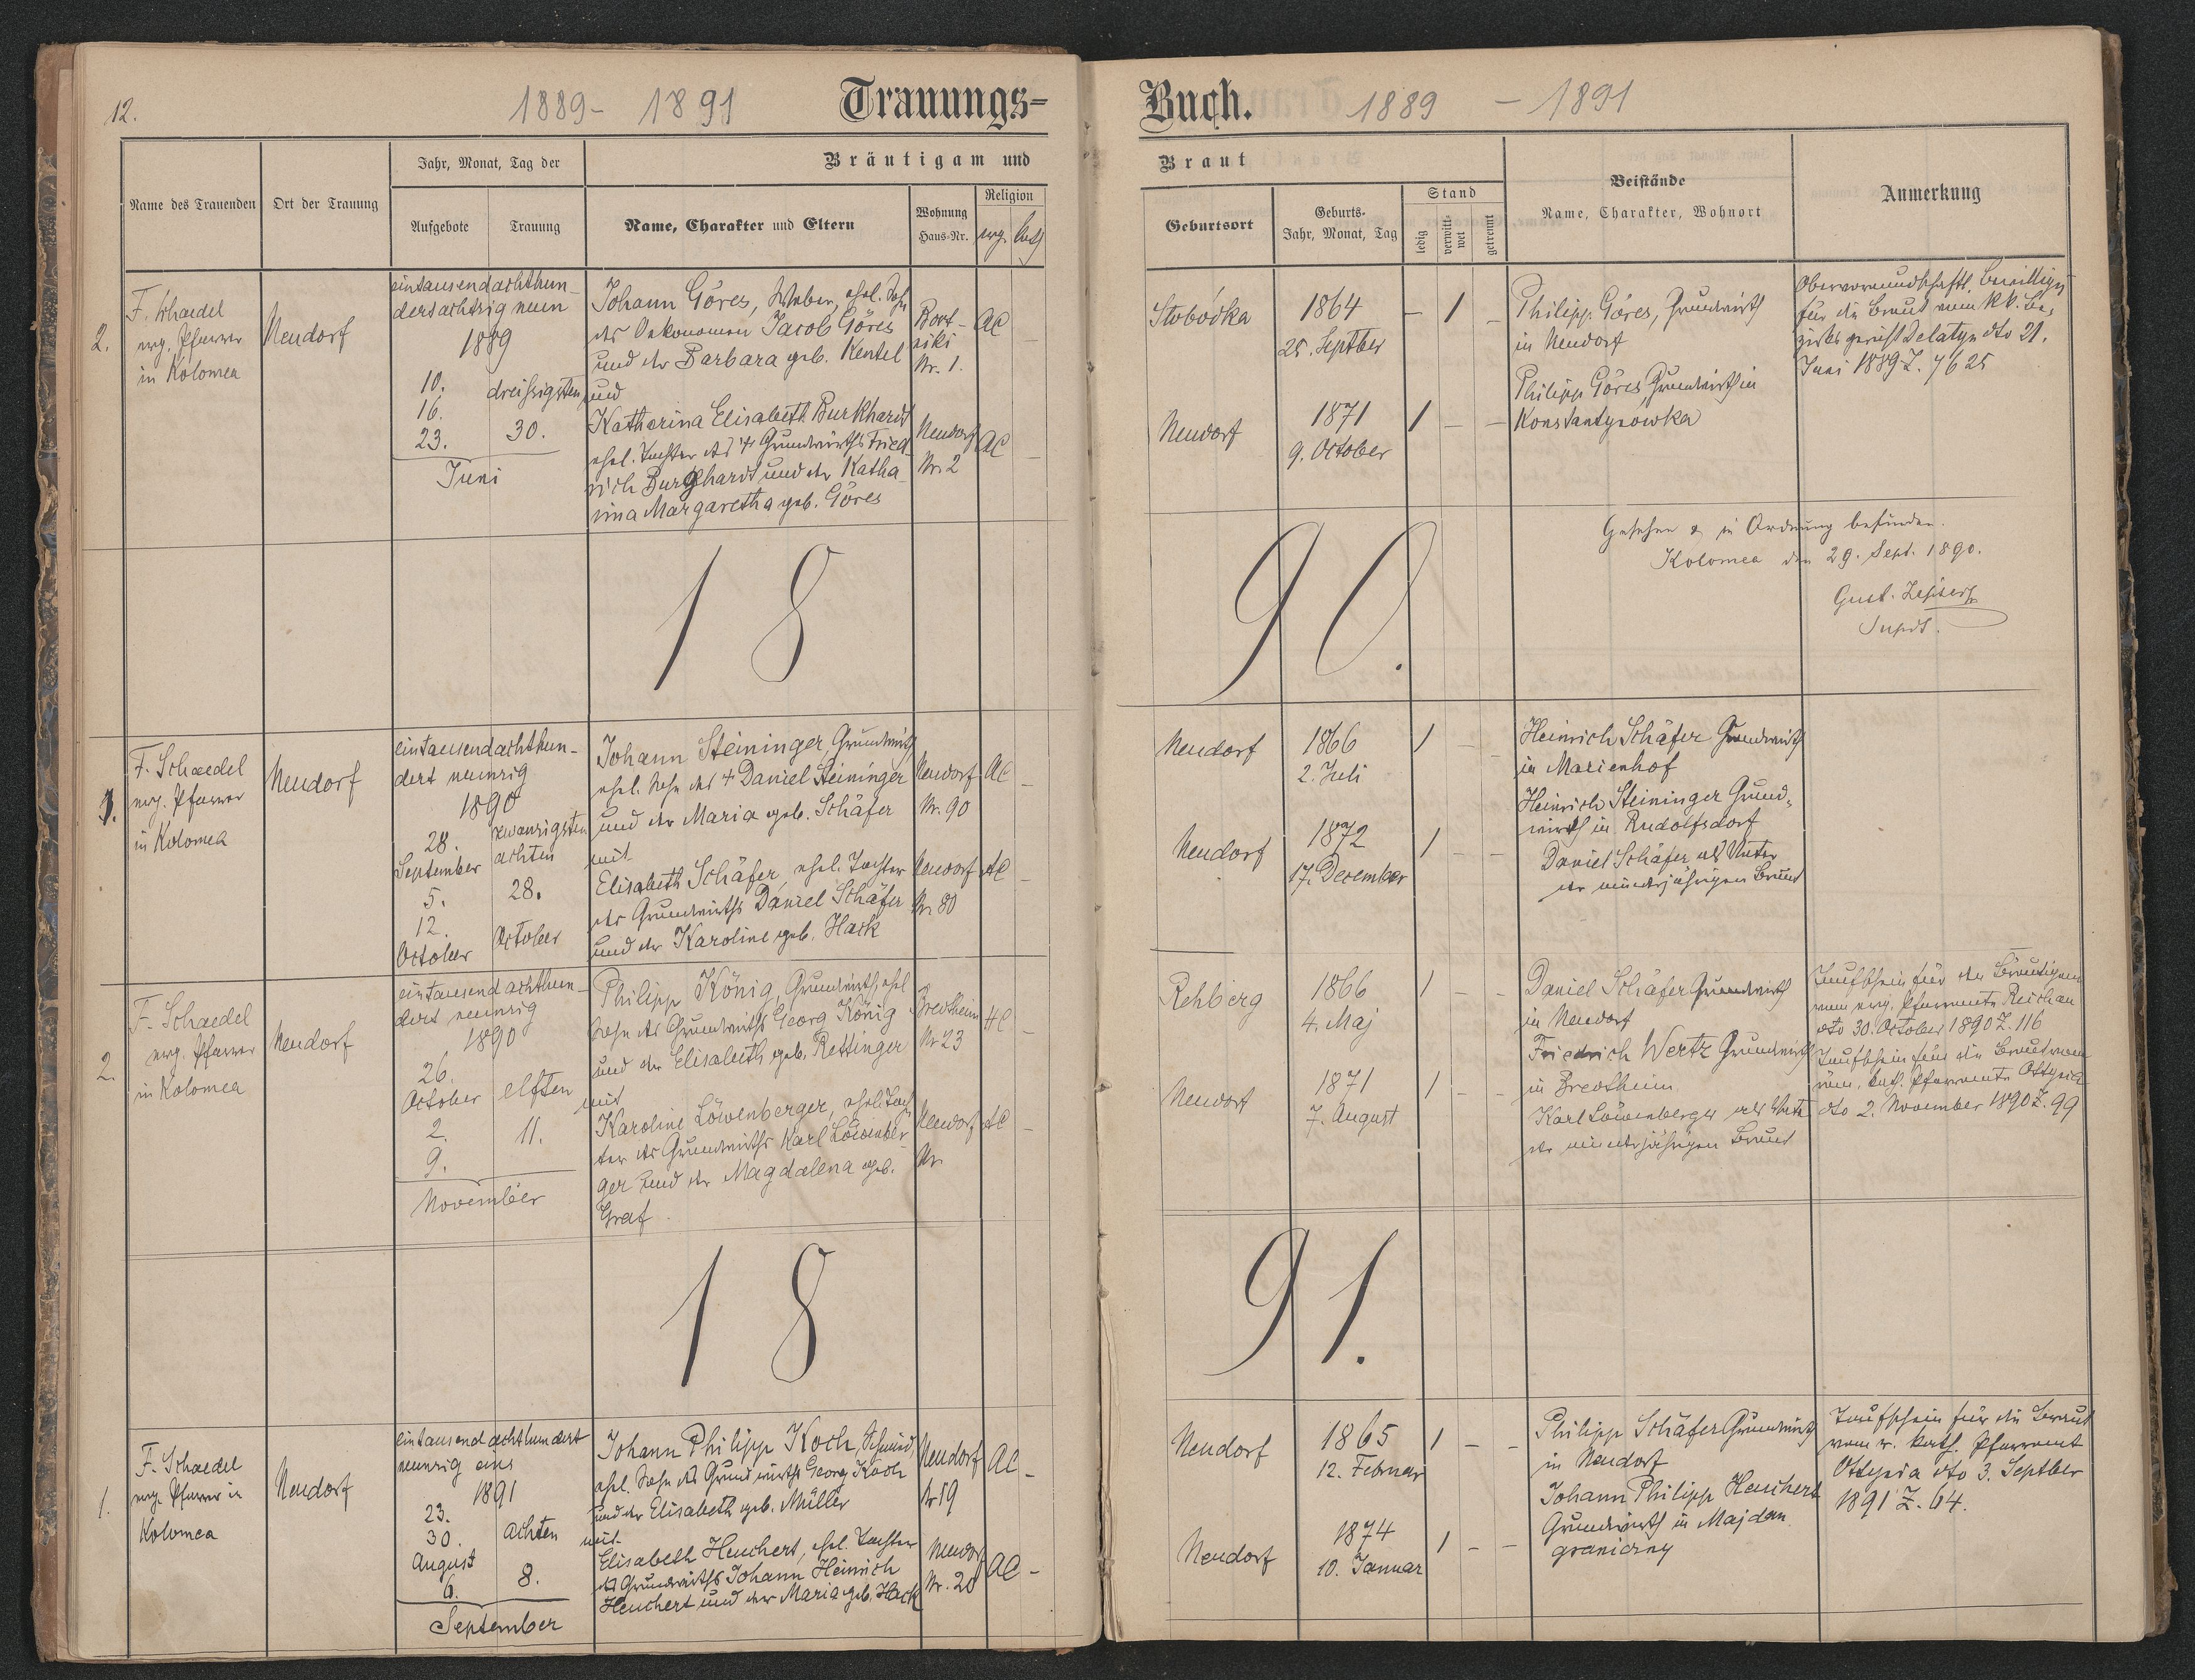 12.
1889 - 1891
Trauungs-
Jahr, Monat, Tag der
Bräutigam und
Name des Trauenden
Ort der Trauung
Aufgebote
Trauung
Name, Charakter und Eltern
Wohnung
Haus-Nr.
Religion
evg.
kath
2.
F. Schaedel
evg. Pfarrer
in Kolomea
Neudorf
eintausendachthun-
dertachtzig neun
1889
10.
16.
23.
Juni
dreißigsten
30.
Johann Göres, Weber, ehel. Sohn
des Oekonomen Jacob Göres
und der Barbara geb. Kentel
und
Katharina Elisabeth Burkhardt
ehel. Tochter des † Grundwirths Fried
rich Burghardt und der Katha-
rina Margaretha geb. Göres
Nr. 1.
AC
Neudorf
Nr. 2
AC
18
1.
F. Schaedel
evg. Pfarrer
in Kolomea
Neudorf
eintausendachthun-
dert neunzig
1890
28.
September
5.
12.
October
zwanzigsten
achten
28.
October
Johann Steininger, Grundwirth
ehel. Sohn des † Daniel Steininger
und der Maria geb. Schäfer
mit
Elisabeth Schäfer, ehel. Tochter
des Grundwirths Daniel Schäfer
und der Karoline geb. Hack
Neudorf
Nr. 90
AC
Neudorf
Nr. 80
AC
2.
F. Schaedel
evg. Pfarrer
in Kolomea
Neudorf
eintausendachthun-
dert neunzig
1890
26.
October
2.
9.
November
elften
11.
Philipp König, Grundwirth, ehel
Sohn des Grundwirths Georg König
und der Elisabeth geb. Rettinger
mit
Karoline Löwenberger, ehel. Toch
ter des Grundwirths Karl Löwenber
ger und der Magdalena geb.
Graf
Bredtheim
Nr. 23
HC
Neudorf
Nr.
AC
18
1.
F. Schaedel
evg. Pfarrer in
Kolomea
Neudorf
eintausendachthundert
neunzig eins
1891
23.
30.
August
6.
September
achten
8.
Johann Philipp Koch, Schmied
ehel. Sohn des Grundwirths Georg Koch
und der Elisabeth geb. Müller
mit
Elisabeth Heuchert, ehel. Tochter
des Grundwirths Johann Heinrich
Heuchert und der Maria geb. Hack
Neudorf
Nr. 59
AC
Neudorf
Nr. 20
AC
Buch.
1889 - 1891
Braut
Geburtsort
Geburts-
Jahr, Monat, Tag
Stand
ledig
verwitt-
wet
getrennt
Beistände
Name, Charakter, Wohnort
Anmerkung
Slobódka
1864
25. Septber
– 1 –
Philipp Göres, Grundwirth
in Neudorf
Philipp Göres, Grundwirth in
Konstantynowka
Obervormundschaftl. Bewilligg
für die Braut vom k.k. Be-
zirks gericht Delatyn dto 21.
Juni 1889 Z. 7625
Neudorf
1871
9. October
1 – –
90.
Gesehen & in Ordnung befunden.
Kolomea den 29. Sept. 1890.
Supdt.
Neudorf
1866
2. Juli
1 – –
Heinrich Schäfer Grundwirth
in Marienhof
Heinrich Steininger Grund-
wirth in Rudolfsdorf
Daniel Schäfer als Vater
der minderjährigen Braut
Neudorf
1872
17. December
1 – –
Rehberg
1866
4. Maj
1 – –
Daniel Schäfer Grundwirth
in Neudorf
Friedrich Wertz Grundwirth
in Bredtheim
Karl Löwenberger als Vater
der minderjährigen Braut
Taufschein für den Bräutigam
vom evg. Pfarramte Reichau
dto 30. October 1890 Z. 116
Taufschein für die Braut vom
röm. kath. Pfarramte Ottynia
dto 2. November 1890 Z. 99
Neudorf
1871
7. August
1 – –
91.
Neudorf
1865
12. Februar
1 – –
Philipp Schäfer Grundwirth
in Neudorf
Johann Philipp Heuchert
Grundwirth in Majdan
graniczny
Taufschein für die Braut
vom r. kath. Pfarramt
Ottynia dto 3. Septber
1891 Z. 64.
Neudorf
1874
10. Januar
1 – –